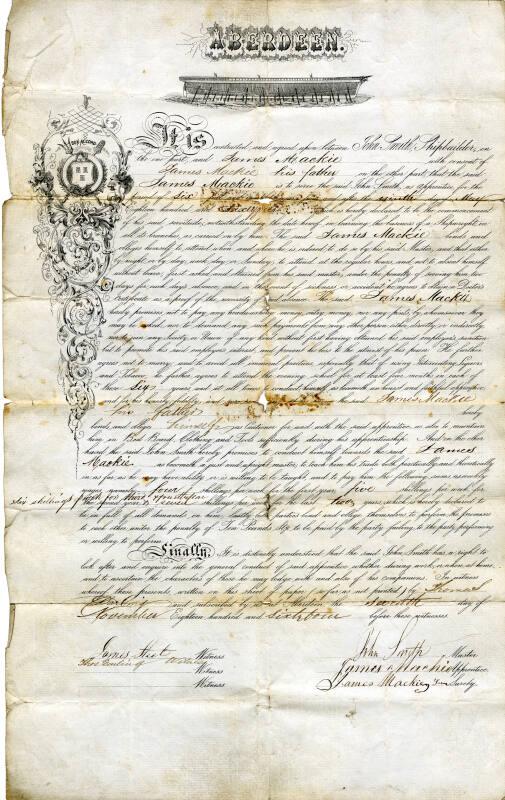 ABERDEEN.
It is contracted and agreed upon between John Smith, Shipbuilder, on
the one part, and James Mackie with consent of
James Mackie his father on the other part that the said
James Mackie is to serve the said John Smith, as apprentice for the
of six after the ninth May
Eighteen hundred and which is hereby declared to be the commencement
notwithstanding the date hereof in learning the business of a Shipwright, in
all its branches, as carried on by him. The said James Mackie binds and
himself to attend and obey
night or by day, week day or Sunday, to attend at the regular hours, and not to absent himself
without leave, first asked and obtained from his master, under the penalty of serving him two
days for each day's absence, and in the event of sickness or accident he agrees to show a Doctor's
Certificate as a proof of the necessity of such absence. The said James Mackie
hereby promises not to pay any
be asked, nor to demand any such payments from any other person, either directly or indirectly,
join any Society, or Union of any kind without first having obtained his said employer's sanction
but to promote his said employer's interest, and prevent his loss to the utmost of his power. He further
agrees not to marry, and to avoid all immoral practices, especially that of using Intoxicating Liquors
and Tobacco. He further agrees to attend for at least five months in each of
these six years and at all times to conduct himself as becometh an honest and faithful apprentice
and the said James Mackie
his father hereby
binds and obliges himself as Cautioner for said with the said apprentice, as also to maintain
him in Bed, Board, Clothing and Tools sufficiently during his apprenticeship. And on the other
hand, the said John Smith hereby promises to conduct himself towards the said James
Mackie as becometh a just and upright master, to teach him his Trade both practically and theoretically
in as far as he has ability or is willing to be taught, and to pay him the following sums as weekly
wages namely: four shillings per week for the first year, five shillings per week for
six shillings per week for third year and for fourth year
seven shillings per week for two years, which is hereby declared to
be in full of all demands. And lastly both parties bind and oblige themselves to perform the premises
to each other under the penalty of Ten Pounds Stg. to be paid by the party failing to the party performing
or willing to perform.
Finally. It is distinctly understood that the said John Smith has a right to
look after and enquire into the general conduct of said apprentice, whether during work, or when at home,
and to ascertain the characters of those he may lodge with and also of his companions. In witness
whereof these presents, written on this sheet of paper (in so far as not printed) by Thomas
and subscribed by us at Aberdeen the Seventh day of
November Eighteen hundred and Sixty four before these witnesses
James Witness
Thos Witness
Witness
John Smith Master
James Mackie Apprentice
James Mackie Surety